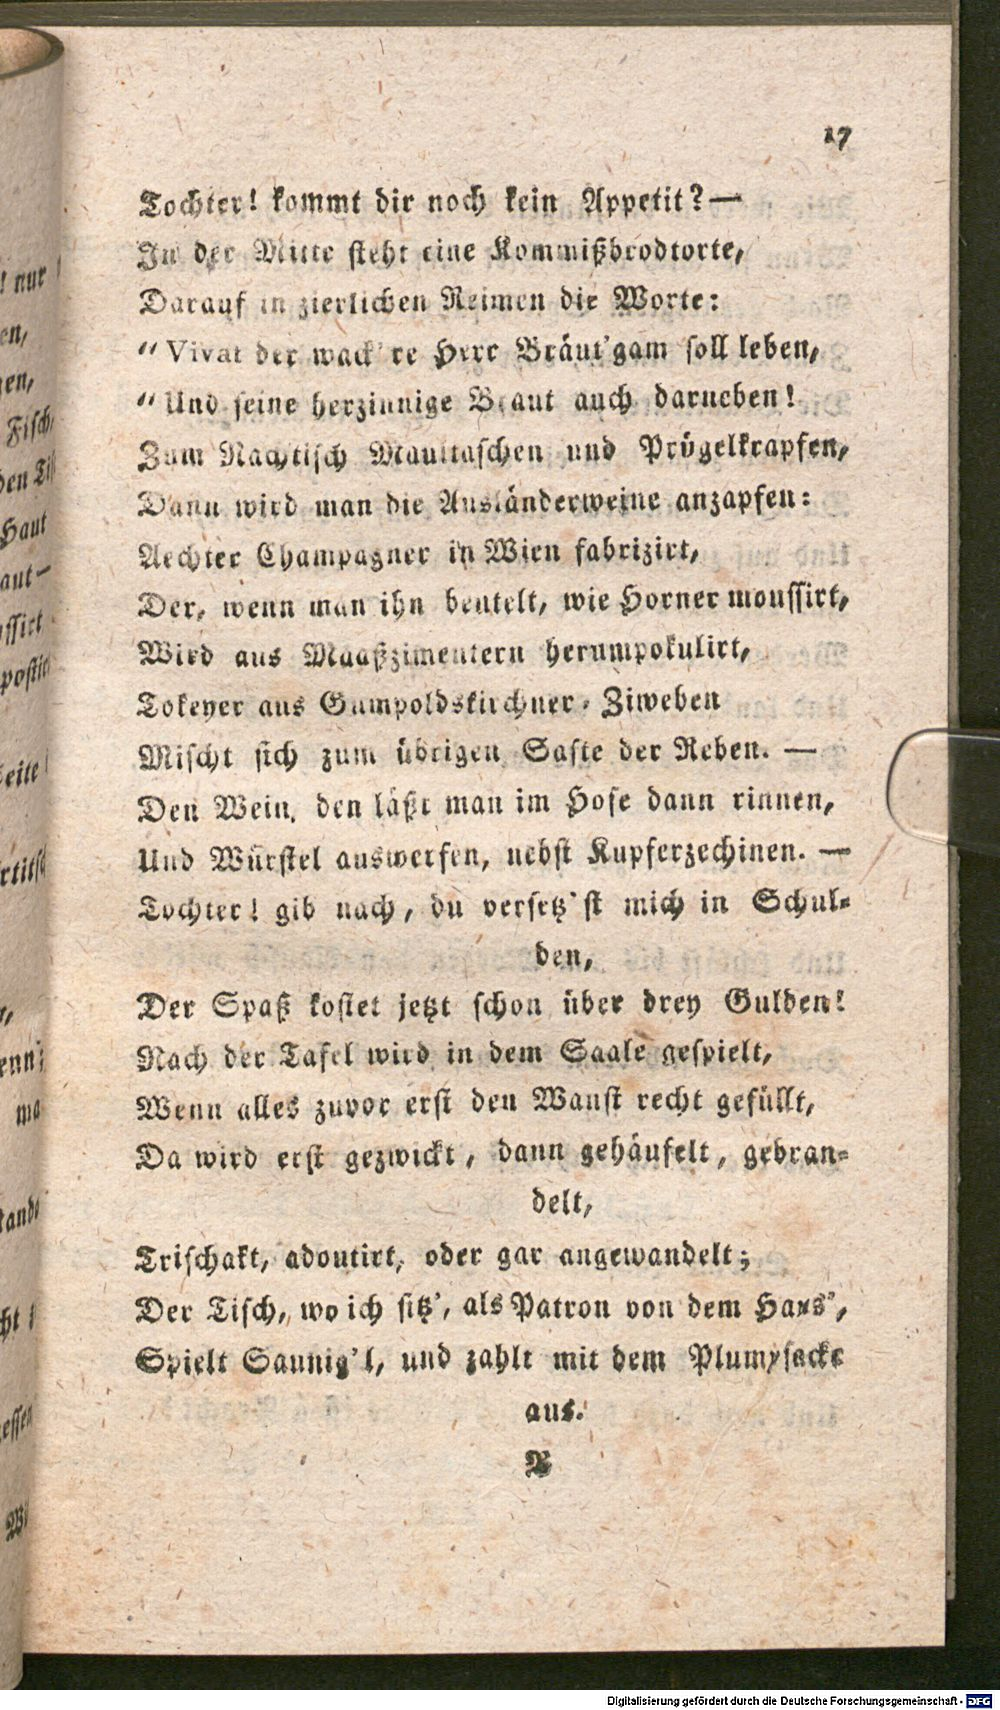 17
Tochter! kommt dir noch kein Appetit? —
In der Mitte steht eine Kommißbrodtorte,
Darauf in zierlichen Reimen die Worte:
"Vivat der wack're Herr Bräut'gam soll leben,
"Und seine herzinnige Braut auch darneben!
Zum Nachtisch Maultaschen und Prügelkrapfen,
Dann wird man die Ausländerweine anzapfen:
Aechter Champagner in Wien fabrizirt,
Der, wenn man ihn beutelt, wie Horner moussirt,
Wird aus Maaßzimentern herumpokulirt,
Tokeyer aus Gumpoldskirchner-Ziweben
Mischt sich zum übrigen Safte der Reben. —
Den Wein, den läßt man im Hofe dann rinnen,
Und Würstel auswerfen, nebst Kupferzechinen. —
Tochter! gib nach, du versetz'st mich in Schul-
den,
Der Spaß kostet jetzt schon über drey Gulden!
Nach der Tafel wird in dem Saale gespielt,
Wenn alles zuvor erst den Wanst recht gefüllt,
Da wird erst gezwickt, dann gehäufelt, gebran-
delt,
Trischakt, adoutirt, oder gar angewandelt;
Der Tisch, wo ich sitz', als Patron von dem Haus',
Spielt Saunig'l, und zahlt mit dem Plumpsacke
aus.
B
Digitalisierung gefördert durch die Deutsche Forschungsgemeinschaft - DFG